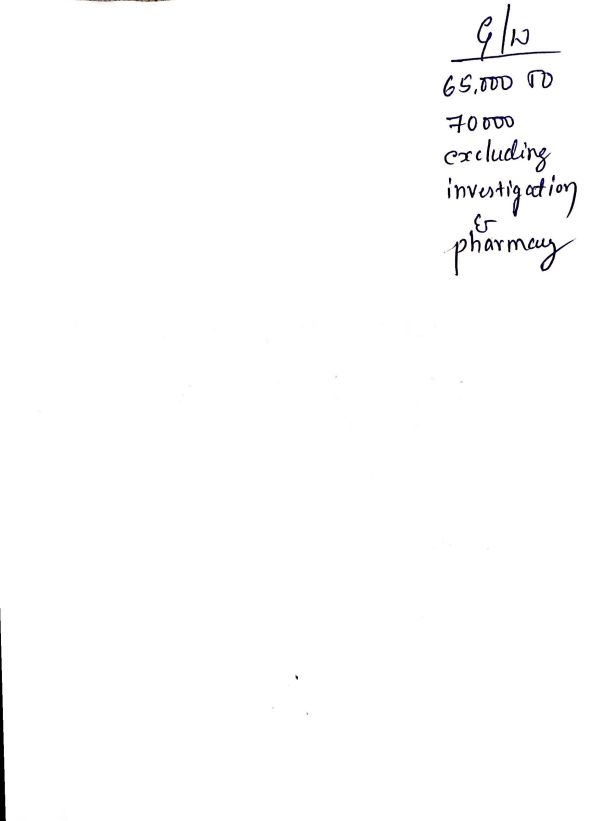 G/W
65,000 TO
70000
excluding
investigation
&
pharmacy